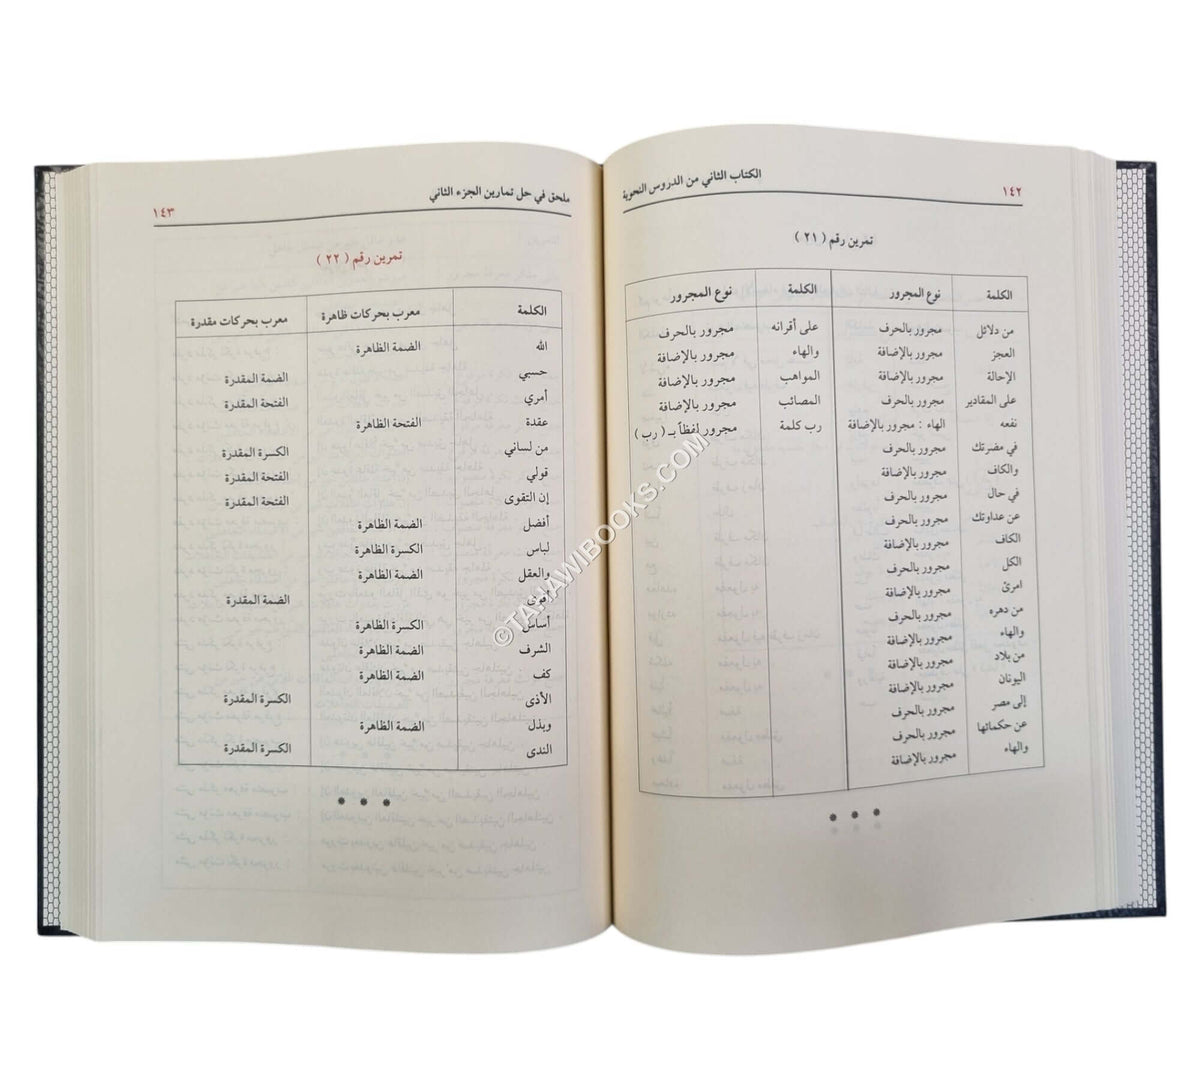 ١٤٢ الكتاب الثاني من الدروس النحوية
تمرين رقم ( ٢١ )
الكلمة نوع المجرور الكلمة نوع المجرور
من دلائل مجرور بالحرف على أقرانه مجرور بالحرف
العجز مجرور بالإضافة والهاء مجرور بالإضافة
الإحالة مجرور بالإضافة المواهب مجرور بالإضافة
على المقادير مجرور بالحرف المصائب مجرور بالإضافة
نفعه الهاء : مجرور بالإضافة رب كلمة مجرور لفظاً بـ ( رب )
في مضرتك مجرور بالحرف
والكاف مجرور بالإضافة
في حال مجرور بالحرف
عن عداوتك مجرور بالحرف
الكاف مجرور بالإضافة
الكل مجرور بالحرف
امرئ مجرور بالإضافة
من دهره مجرور بالحرف
والهاء مجرور بالإضافة
من بلاد مجرور بالإضافة
اليونان مجرور بالإضافة
إلى مصر مجرور بالحرف
عن حكمائها مجرور بالحرف
والهاء مجرور بالإضافة
ملحق في حل تمارين الجزء الثاني ١٤٣
تمرين رقم ( ٢٢ )
الكلمة معرب بحركات ظاهرة معرب بحركات مقدرة
الله الضمة الظاهرة
حسبي الضمة المقدرة
أمري الفتحة المقدرة
عقدة الفتحة الظاهرة
من لساني الكسرة المقدرة
قولي الفتحة المقدرة
إن التقوى الفتحة المقدرة
أفضل الضمة الظاهرة
لباس الكسرة الظاهرة
والعقل الضمة الظاهرة
أقوى الضمة المقدرة
أساس الكسرة الظاهرة
الشرف الضمة الظاهرة
كف الضمة الظاهرة
الأذى الكسرة المقدرة
وبذل الضمة الظاهرة
الندى الكسرة المقدرة
©TAHAWIBOOKS.COM